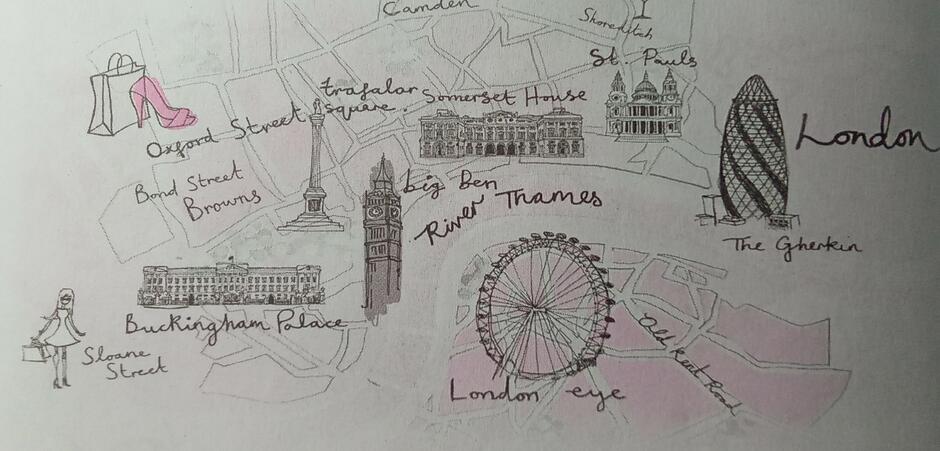 Camden
Shoreditch
St. Pauls
trafalar
square.
Somerset House
Oxford Street
London
Bond Street
Browns
big Ben
River Thames
The Gherkin
Buckingham Palace
Sloane
Street
Old Kent Road
London eye